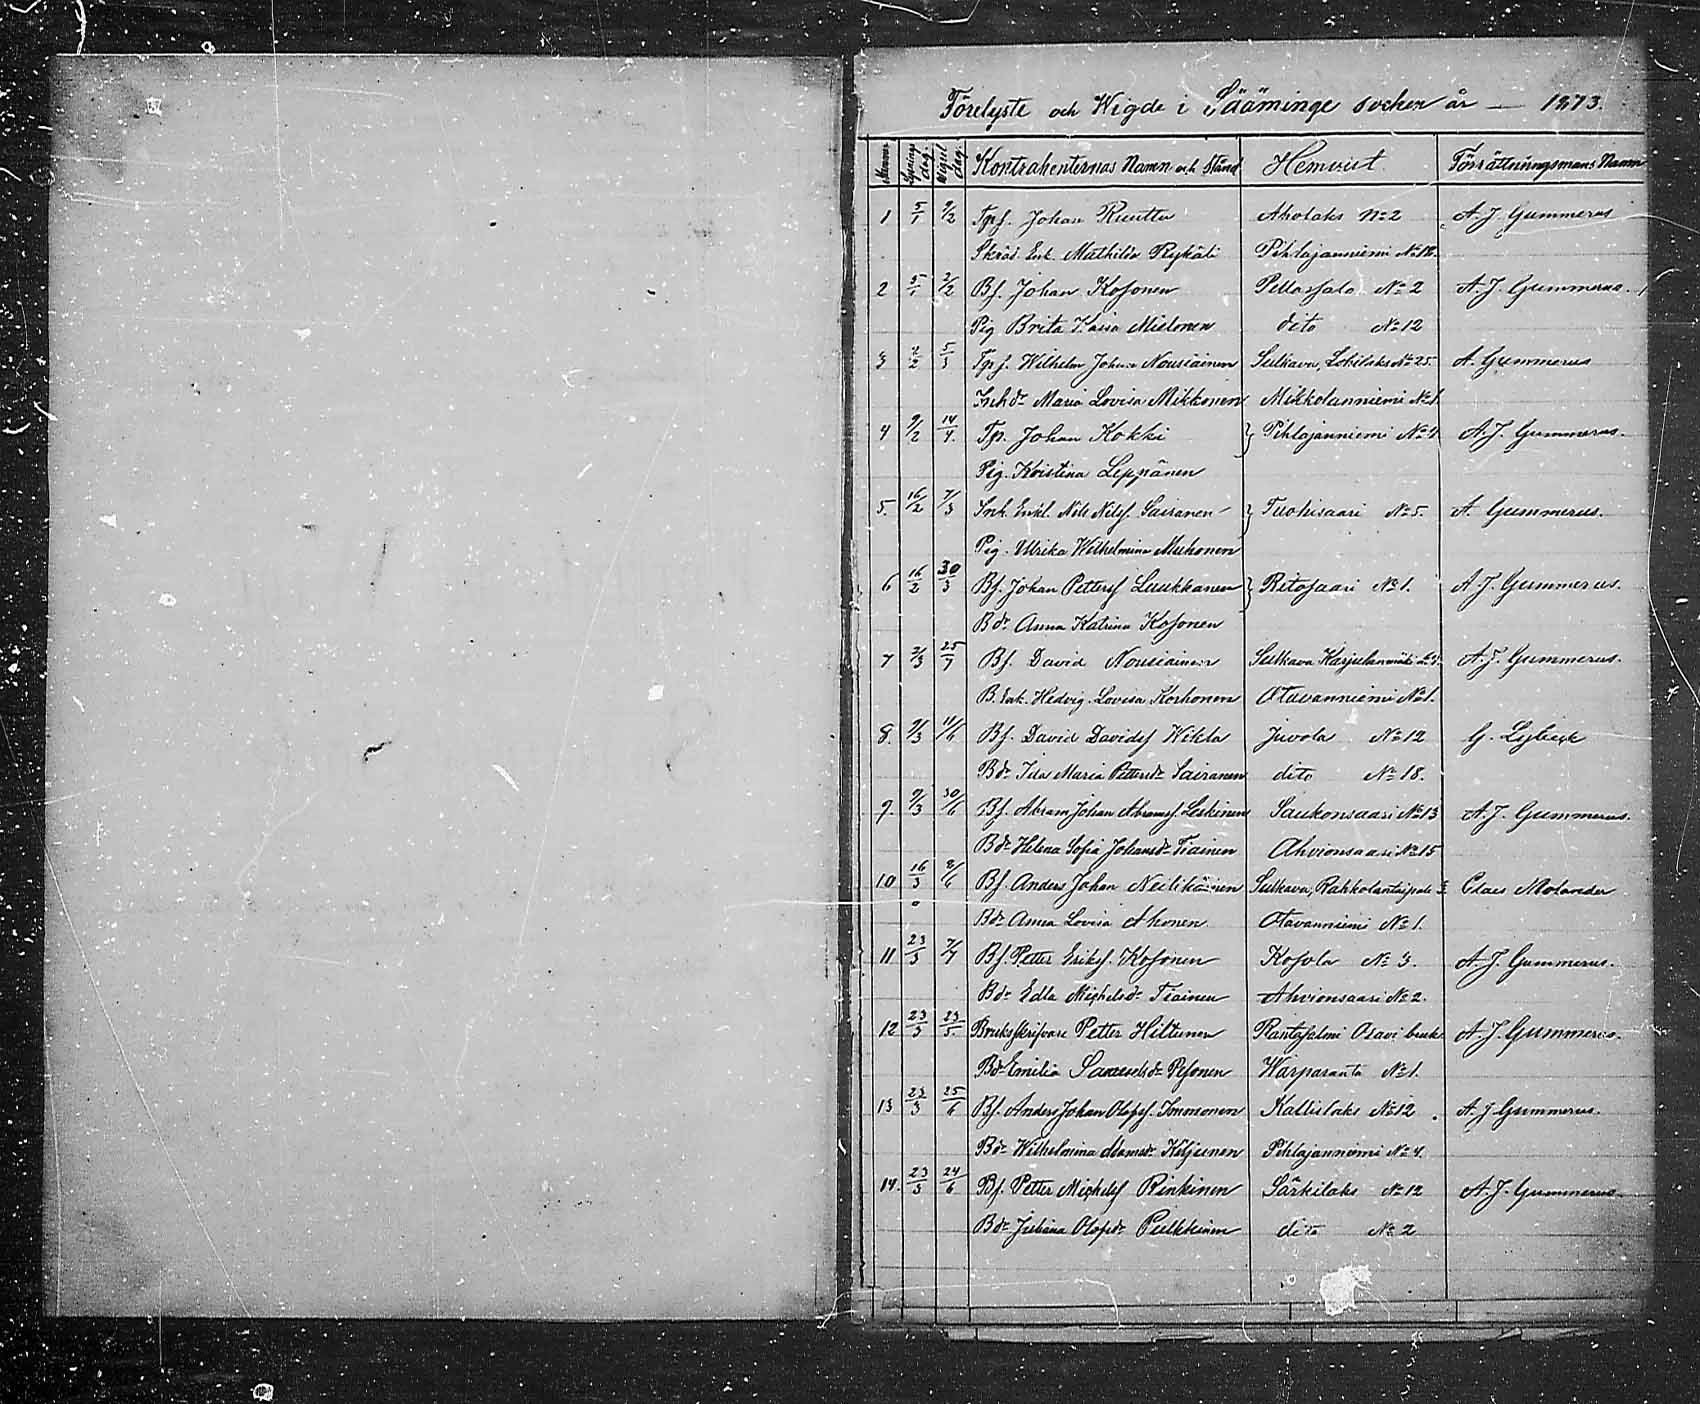 Förelyste och Wigde i Sääminge socken år — 1873.
Nummer Lysnings dag. Wigsel dag. Kontrahenternas Namn och Stånd Hemvist Förrättningsmans Namn
1 5/1 9/2 Tpf. Johan Ruutta Aholaks No 2 A. J. Gummerus
Skräd. Enk. Mathilda Pihlajanniemi No 18.
2 5/1 2/2 Bf. Johan Kosonen Pellossalo No 2 A. J. Gummerus.
Pig Brita Kaisa Mielonen dito No 12
3 2/2 5/3 Tpf. Wilhelm Johan Nousiainen Sulkava, Lohilaks No 25. A. Gummerus
Inh dr Maria Lovisa Mikkonen Mikkolanniemi No 1.
4 9/2 14/4. Tp. Johan Kokki } Pihlajanniemi No 4 A. J. Gummerus.
Pig. Kristina Leppänen
5. 16/2 7/3 Inh. Enkl. Nils Nilsf. Sairanen } Tuohisaari No 5. A. Gummerus.
Pig. Ulrika Wilhelmina Muhonen
6 16/2 30/3 Bf. Johan Pettersf Luukkanen } Ritosaari No 1. A. J. Gummerus.
B dr Anna Katrina Kosonen
7 2/3 25/7 Bf. David Nousiainen Sulkava A. J. Gummerus.
B. Enk. Hedvig Lovisa Korhonen Otavanniemi No 1.
8. 9/3 11/6 Bf. David Davidsf Wihla Juvola No 12 G.
B dr Ida Maria Pettersdr Sairanen dito No 18.
9. 9/3 30/6 Bf. Abram Johan Abramsf. Leskinen Saukonsaari No 13 A. J. Gummerus.
B dr Helena Sofia Johansdr Tiainen Ahvionsaari No 15
10 16/3 8/6 Bf. Anders Johan Sulkava, Claes Molander
B dr Anna Lovisa Ahonen Otavanniemi No 1.
11 23/3 7/7 Bf. Petter Eriksf. Kosonen Kosola No 3. A. J. Gummerus.
B dr Edla Michelsdr Tiainen Ahvionsaari No 2.
12 23/3 23/5. Bruksskrifvare Petter Hiltunen Rantasalmi Oravi bruk A. J. Gummerus.
B dr Emilia Samuelsdr Pesonen Warparanta No 1.
13 23/3 25/6 Bf. Anders Johan Olofsf. Immonen Kallislaks No 12. A. J. Gummerus.
B dr Wilhelmina Adamsdr Kiljunen Pihlajanniemi No 4.
14. 23/3 24/6 Bf. Petter Michelsf Rinkinen Särkilaks No 12 A. J. Gummerus
B dr Juliana Olofsdr Pulkkinen dito No 2